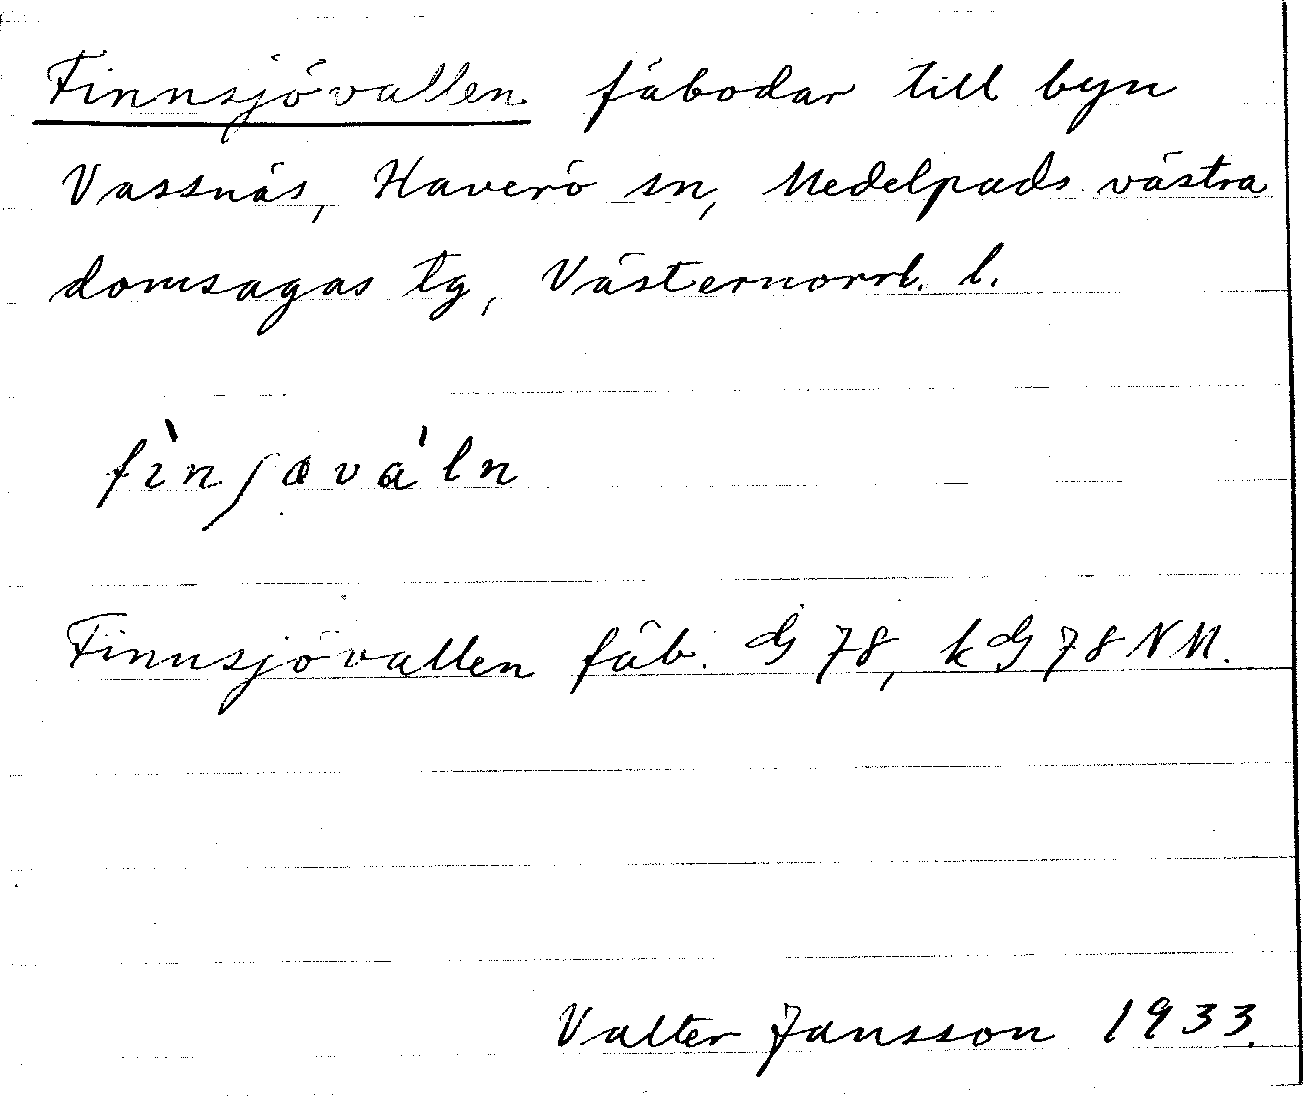 Finnsjövallen fäbodar till byn
Vassnäs, Haverö sn, Medelpads västra
domsagas tg, Västernorrl. l.
fìnʃɷvàln
Finnsjövallen fäb. G 78, k G 78 NM.
Valter Jansson 1933.